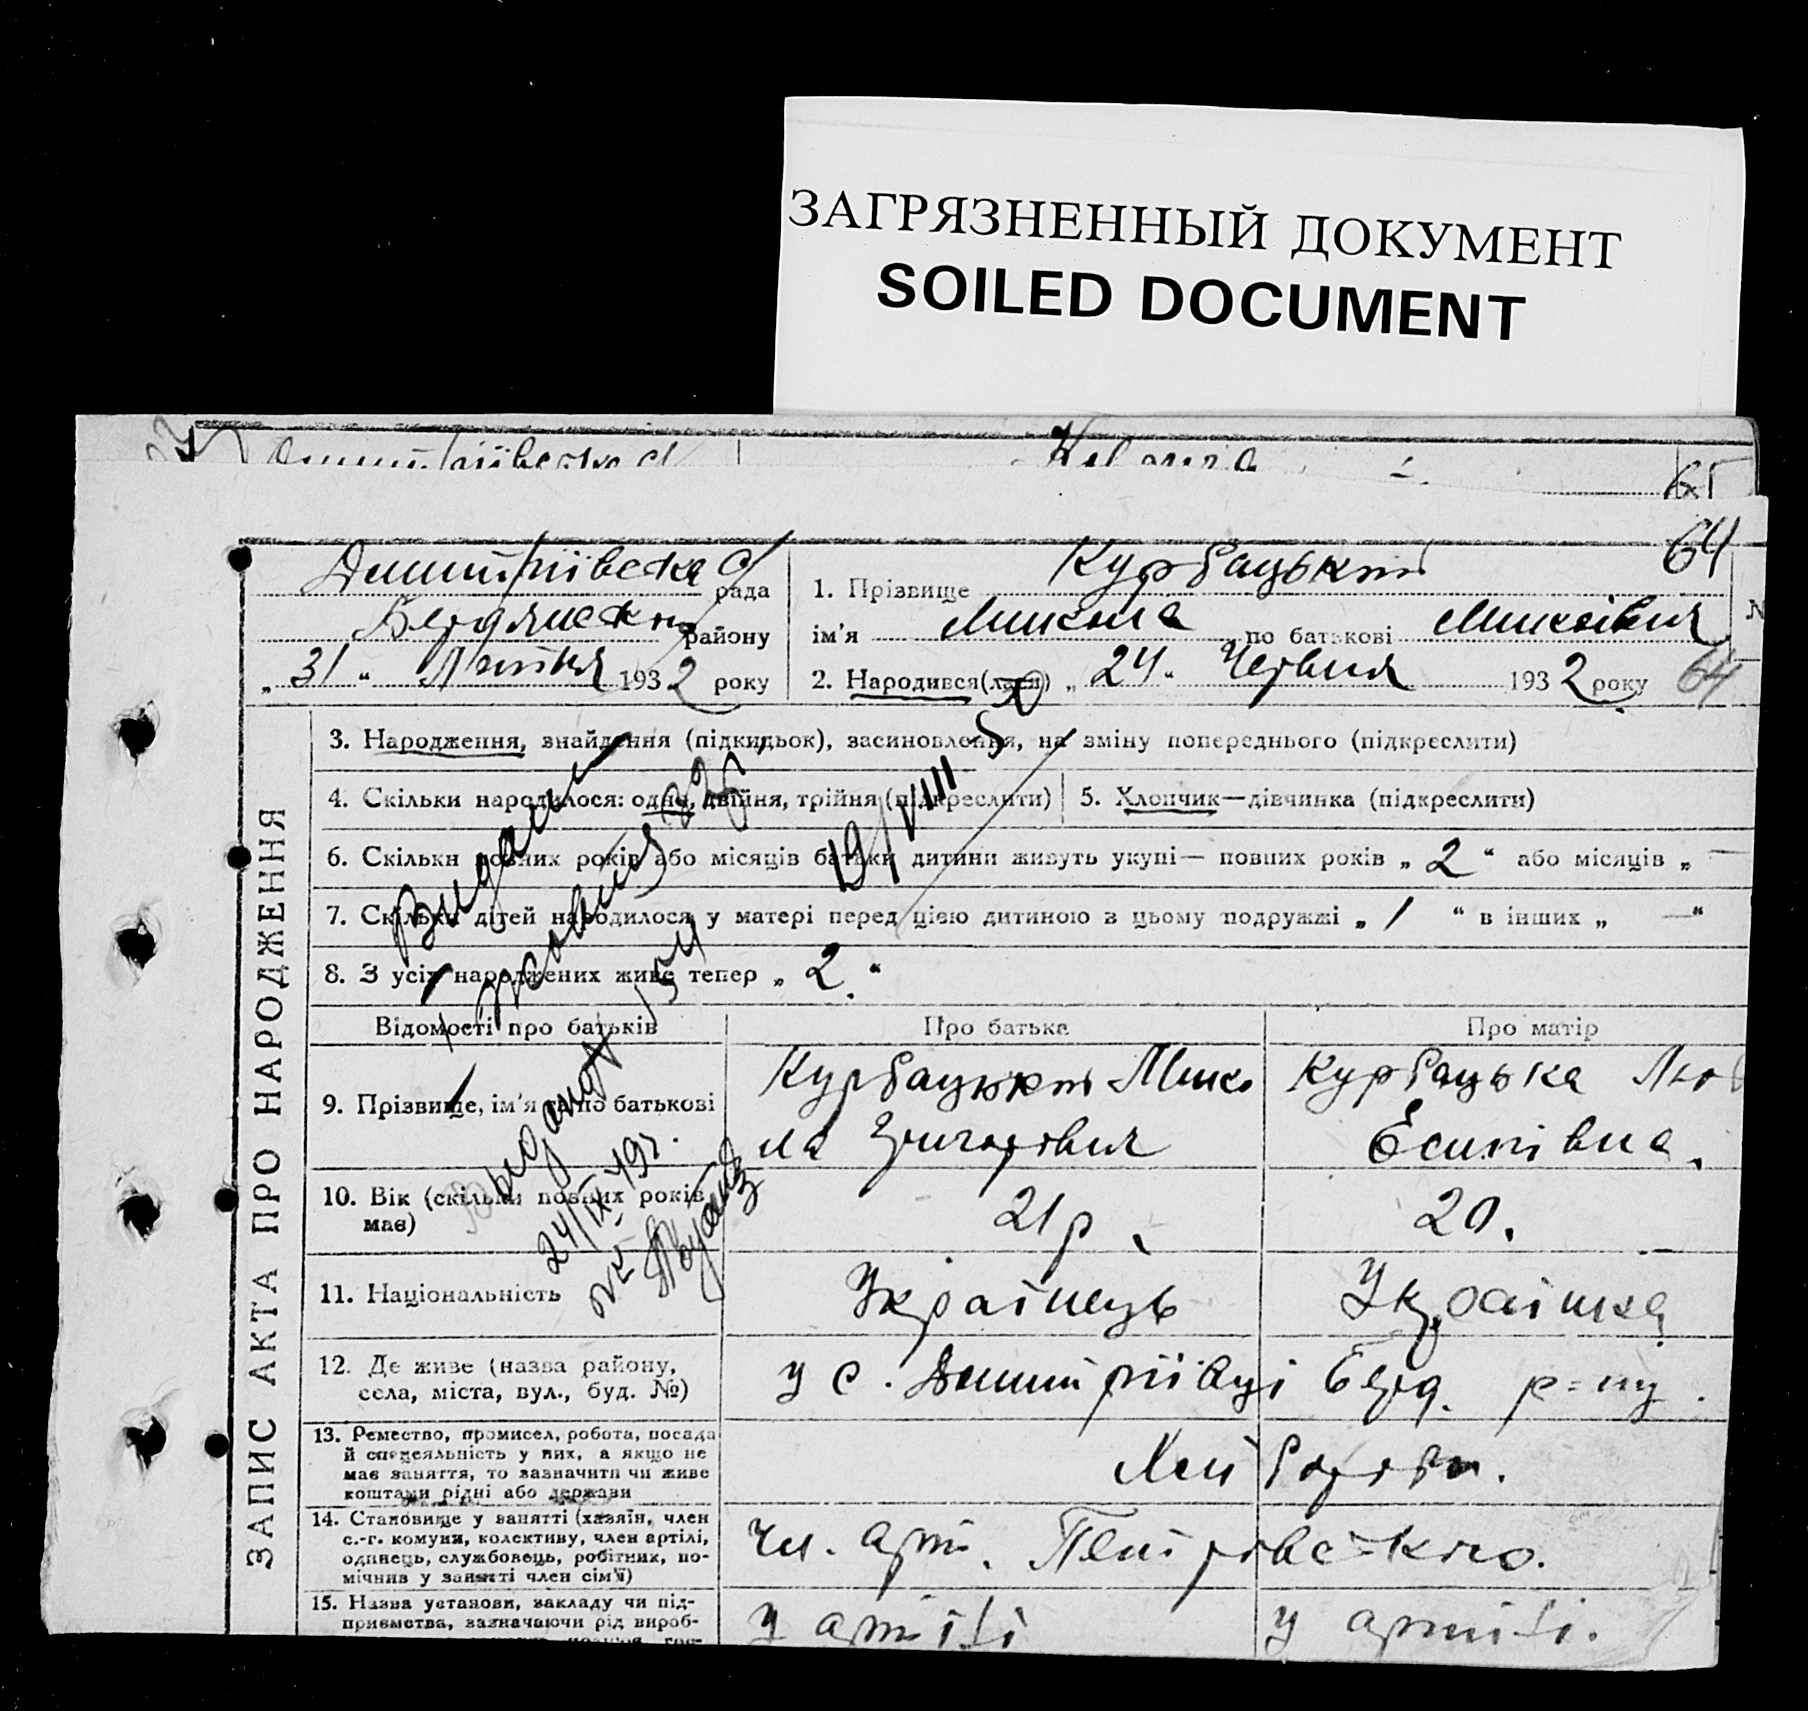 ЗАГРЯЗНЕННЫЙ ДОКУМЕНТ
SOILED DOCUMENT
65
64
Дмитріївска с/рада
Бердянського району
„31“ Липня 1932 року
1. Прізвище Курбацький
ім'я Микола по батькові Миколаївич
2. Народився(лася) „24“ Червня 1932 року 64
ЗАПИС АКТА ПРО НАРОДЖЕННЯ
3. Народження, знайдення (підкидьок), засиновлення, на зміну попереднього (підкреслити)
4. Скільки народилося: одно, двійня, трійня (підкреслити) 5. Хлопчик—дівчинка (підкреслити)
6. Скільки повних років або місяців батьки дитини живуть укупі— повних років „2“ або місяців „ —
7. Скільки дітей народилося у матері перед цією дитиною в цьому подружжі „1“ в інших „ —“
8. З усіх народжених живе тепер „2“
Відомості про батьків Про батька Про матір
9. Прізвище, ім'я та по батькові
Курбацький Мико
ла Григорович
Курбацька Люб
Есипівна.
10. Вік (скільки повних років має) 21 р. 20.
11. Національність Українець Українка
12. Де живе (назва району,
села, міста, вул., буд. №)
у с. Дмитріївці Берд. р=ну.
13. Ремество, промисел, робота, посада
й спецеяльність у них, а якщо не
має заняття, то зазначити чи живе
коштами рідні або держави
Хліборобы.
14. Становище у занятті (хазяїн, член
с.-г. комуни, колективу, член артілі,
одинець, службовець, робітник, по-
мічнив у занятті член сім'ї)
чл. арт. Петровс=кого.
15. Назва установи, закладу чи під-
приємства, зазначаючи рід вироб-
у артілі у артілі.
19/VIII
Выдано
24/IX 49г.